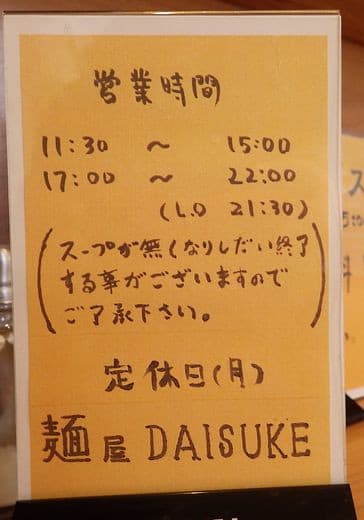 営業時間
11:30 ～ 15:00
17:00 ～ 22:00
(L.O 21:30)
(スープが無くなりしだい終了
する事がございますので
ご了承下さい。)
定休日(月)
麺屋 DAISUKE